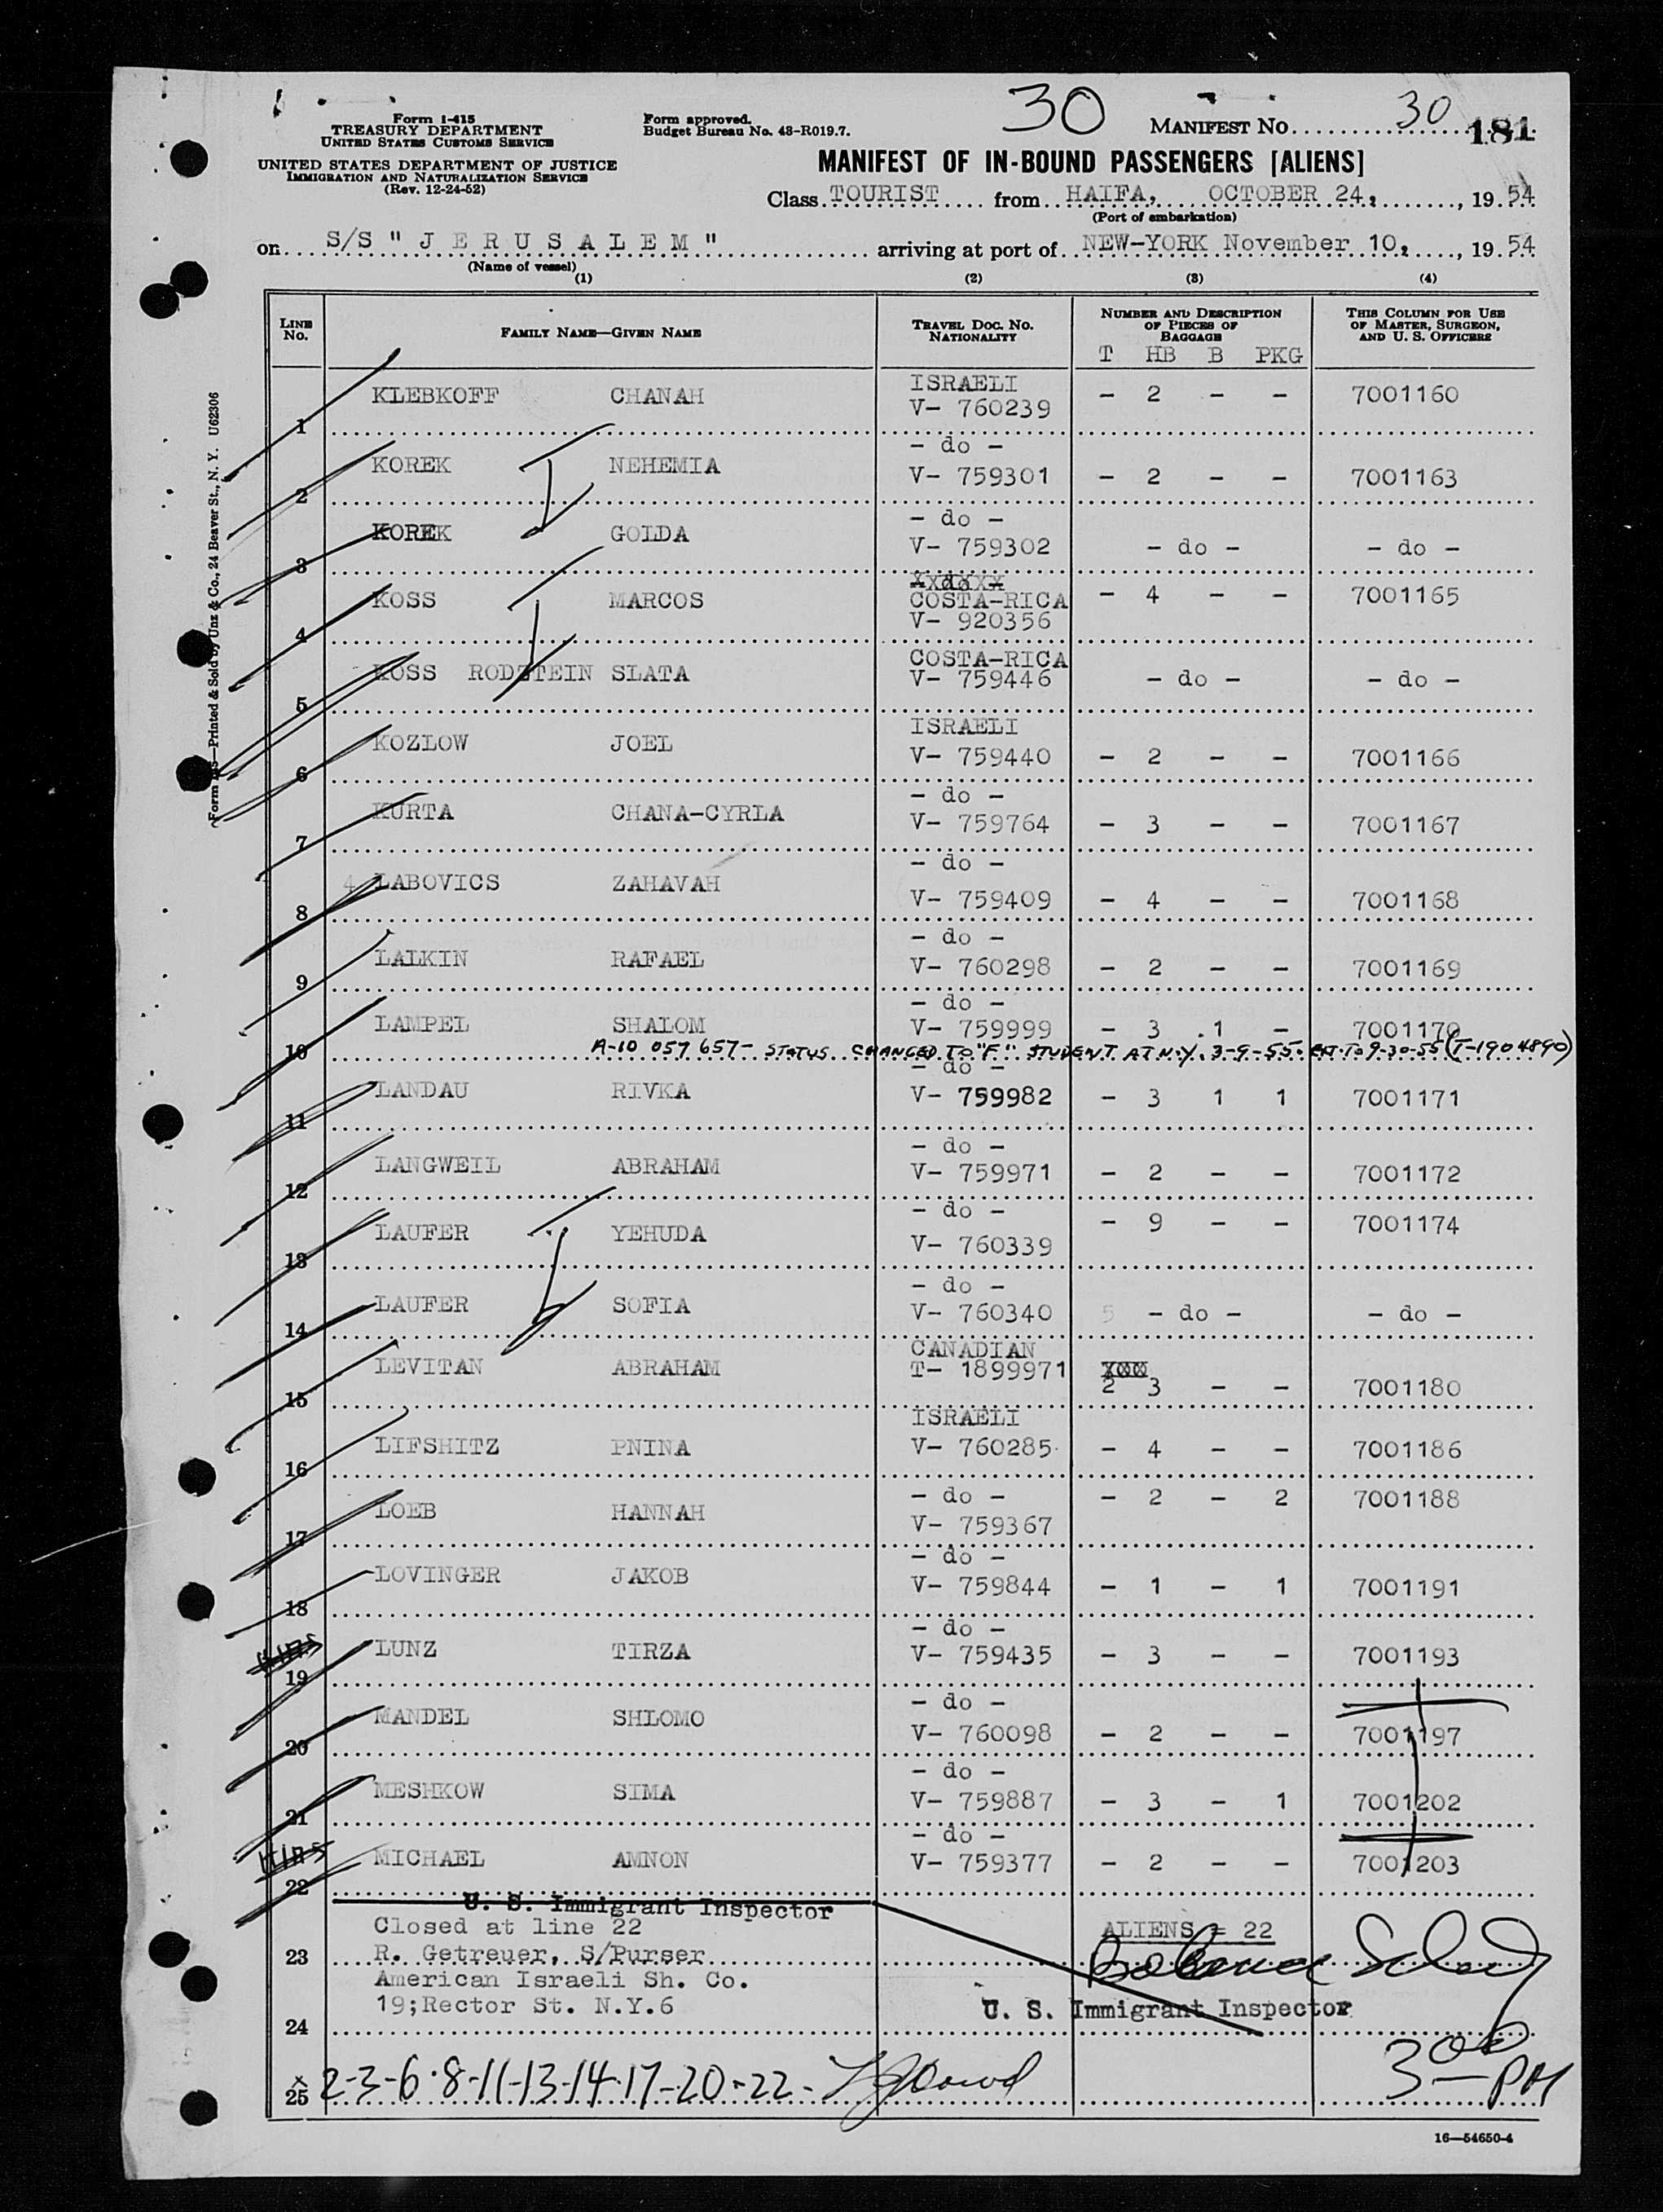 30
Form I-415
TREASURY DEPARTMENT
UNITED STATES CUSTOMS SERVICE
UNITED STATES DEPARTMENT OF JUSTICE
IMMIGRATION AND NATURALIZATION SERVICE
(Rev. 12-24-52)
Form approved.
Budget Bureau No. 48-R019.7.
MANIFEST NO. 30 181
MANIFEST OF IN-BOUND PASSENGERS [ALIENS]
Class TOURIST from HAIFA, OCTOBER 24, , 19 54
(Port of embarkation)
on S/S "JERUSALEM" arriving at port of NEW-YORK November 10, , 19 54
(Name of vessel)
(1) (2) (3) (4)
LINE NO. FAMILY NAME—GIVEN NAME TRAVEL DOC. NO. NATIONALITY NUMBER AND DESCRIPTION OF PIECES OF BAGGAGE THIS COLUMN FOR USE OF MASTER, SURGEON, AND U. S. OFFICERS
T HB B PKG
1 KLEBKOFF CHANAH ISRAELI V- 760239 - 2 - - 7001160
2 KOREK NEHEMIA - do - V- 759301 - 2 - - 7001163
3 KOREK GOLDA - do - V- 759302 - do - - do -
4 KOSS MARCOS COSTA-RICA V- 920356 - 4 - - 7001165
5 KOSS RODZTEIN SLATA COSTA-RICA V- 759446 - do - - do -
6 KOZLOW JOEL ISRAELI V- 759440 - 2 - - 7001166
7 KURTA CHANA-CYRLA - do - V- 759764 - 3 - - 7001167
8 4 LABOVICS ZAHAVAH - do - V- 759409 - 4 - - 7001168
9 LALKIN RAFAEL - do - V- 760298 - 2 - - 7001169
10 LAMPEL SHALOM - do - V- 759999 - 3 1 - 7001170
A-10 057 657- STATUS CHANGED TO "F" STUDENT AT N.Y. 3-9-55. EXT. TO 9-30-55 (T-1904890)
11 LANDAU RIVKA - do - V- 759982 - 3 1 1 7001171
12 LANGWEIL ABRAHAM - do - V- 759971 - 2 - - 7001172
13 LAUFER YEHUDA - do - V- 760339 - 9 - - 7001174
14 LAUFER SOFIA - do - V- 760340 5 - do - - do -
15 LEVITAN ABRAHAM CANADIAN T- 1899971 2 3 - - 7001180
16 LIFSHITZ PNINA ISRAELI V- 760285 - 4 - - 7001186
17 LOEB HANNAH - do - V- 759367 - 2 - 2 7001188
18 LOVINGER JAKOB - do - V- 759844 - 1 - 1 7001191
19 LUNZ TIRZA - do - V- 759435 - 3 - - 7001193
20 MANDEL SHLOMO - do - V- 760098 - 2 - - 7001197
21 MESHKOW SIMA - do - V- 759887 - 3 - 1 7001202
22 MICHAEL AMNON - do - V- 759377 - 2 - - 7001203
U. S. Immigrant Inspector
Closed at line 22
ALIENS = 22
23 R. Getreuer, S/Purser
American Israeli Sh. Co.
19;Rector St. N.Y.6
U. S. Immigrant Inspector
24
3 00 PM
25 x 2-3-6-8-11-13-14-17-20-22-
16—54650-4
Printed & Sold by Unz & Co., 24 Beaver St., N. Y. U62306